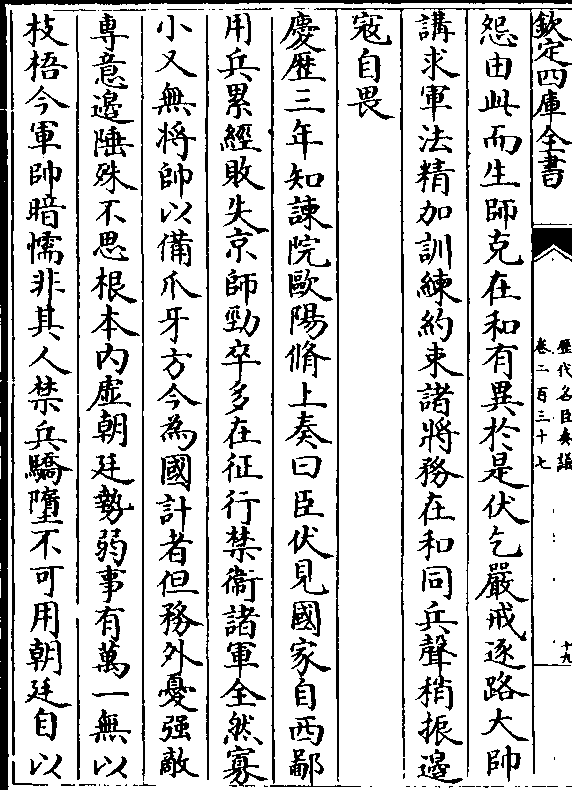 欽定四庫全書
歷代名臣奏議
卷二百三十七
十九
怨由此而生師克在和有異於是伏乞嚴戒逐路大帥
講求軍法精加訓練約束諸將務在和同兵聲稍振邊
寇自畏
慶歷三年知諫院歐陽脩上奏曰臣伏見國家自西鄙
用兵累經敗失京師勁卒多在征行禁衞諸軍全然寡
小又無將帥以備爪牙方今為國計者但務外憂强敵
専意邊陲殊不思根本内虛朝廷勢弱事有萬一無以
枝梧今軍帥暗懦非其人禁兵驕墮不可用朝廷自以